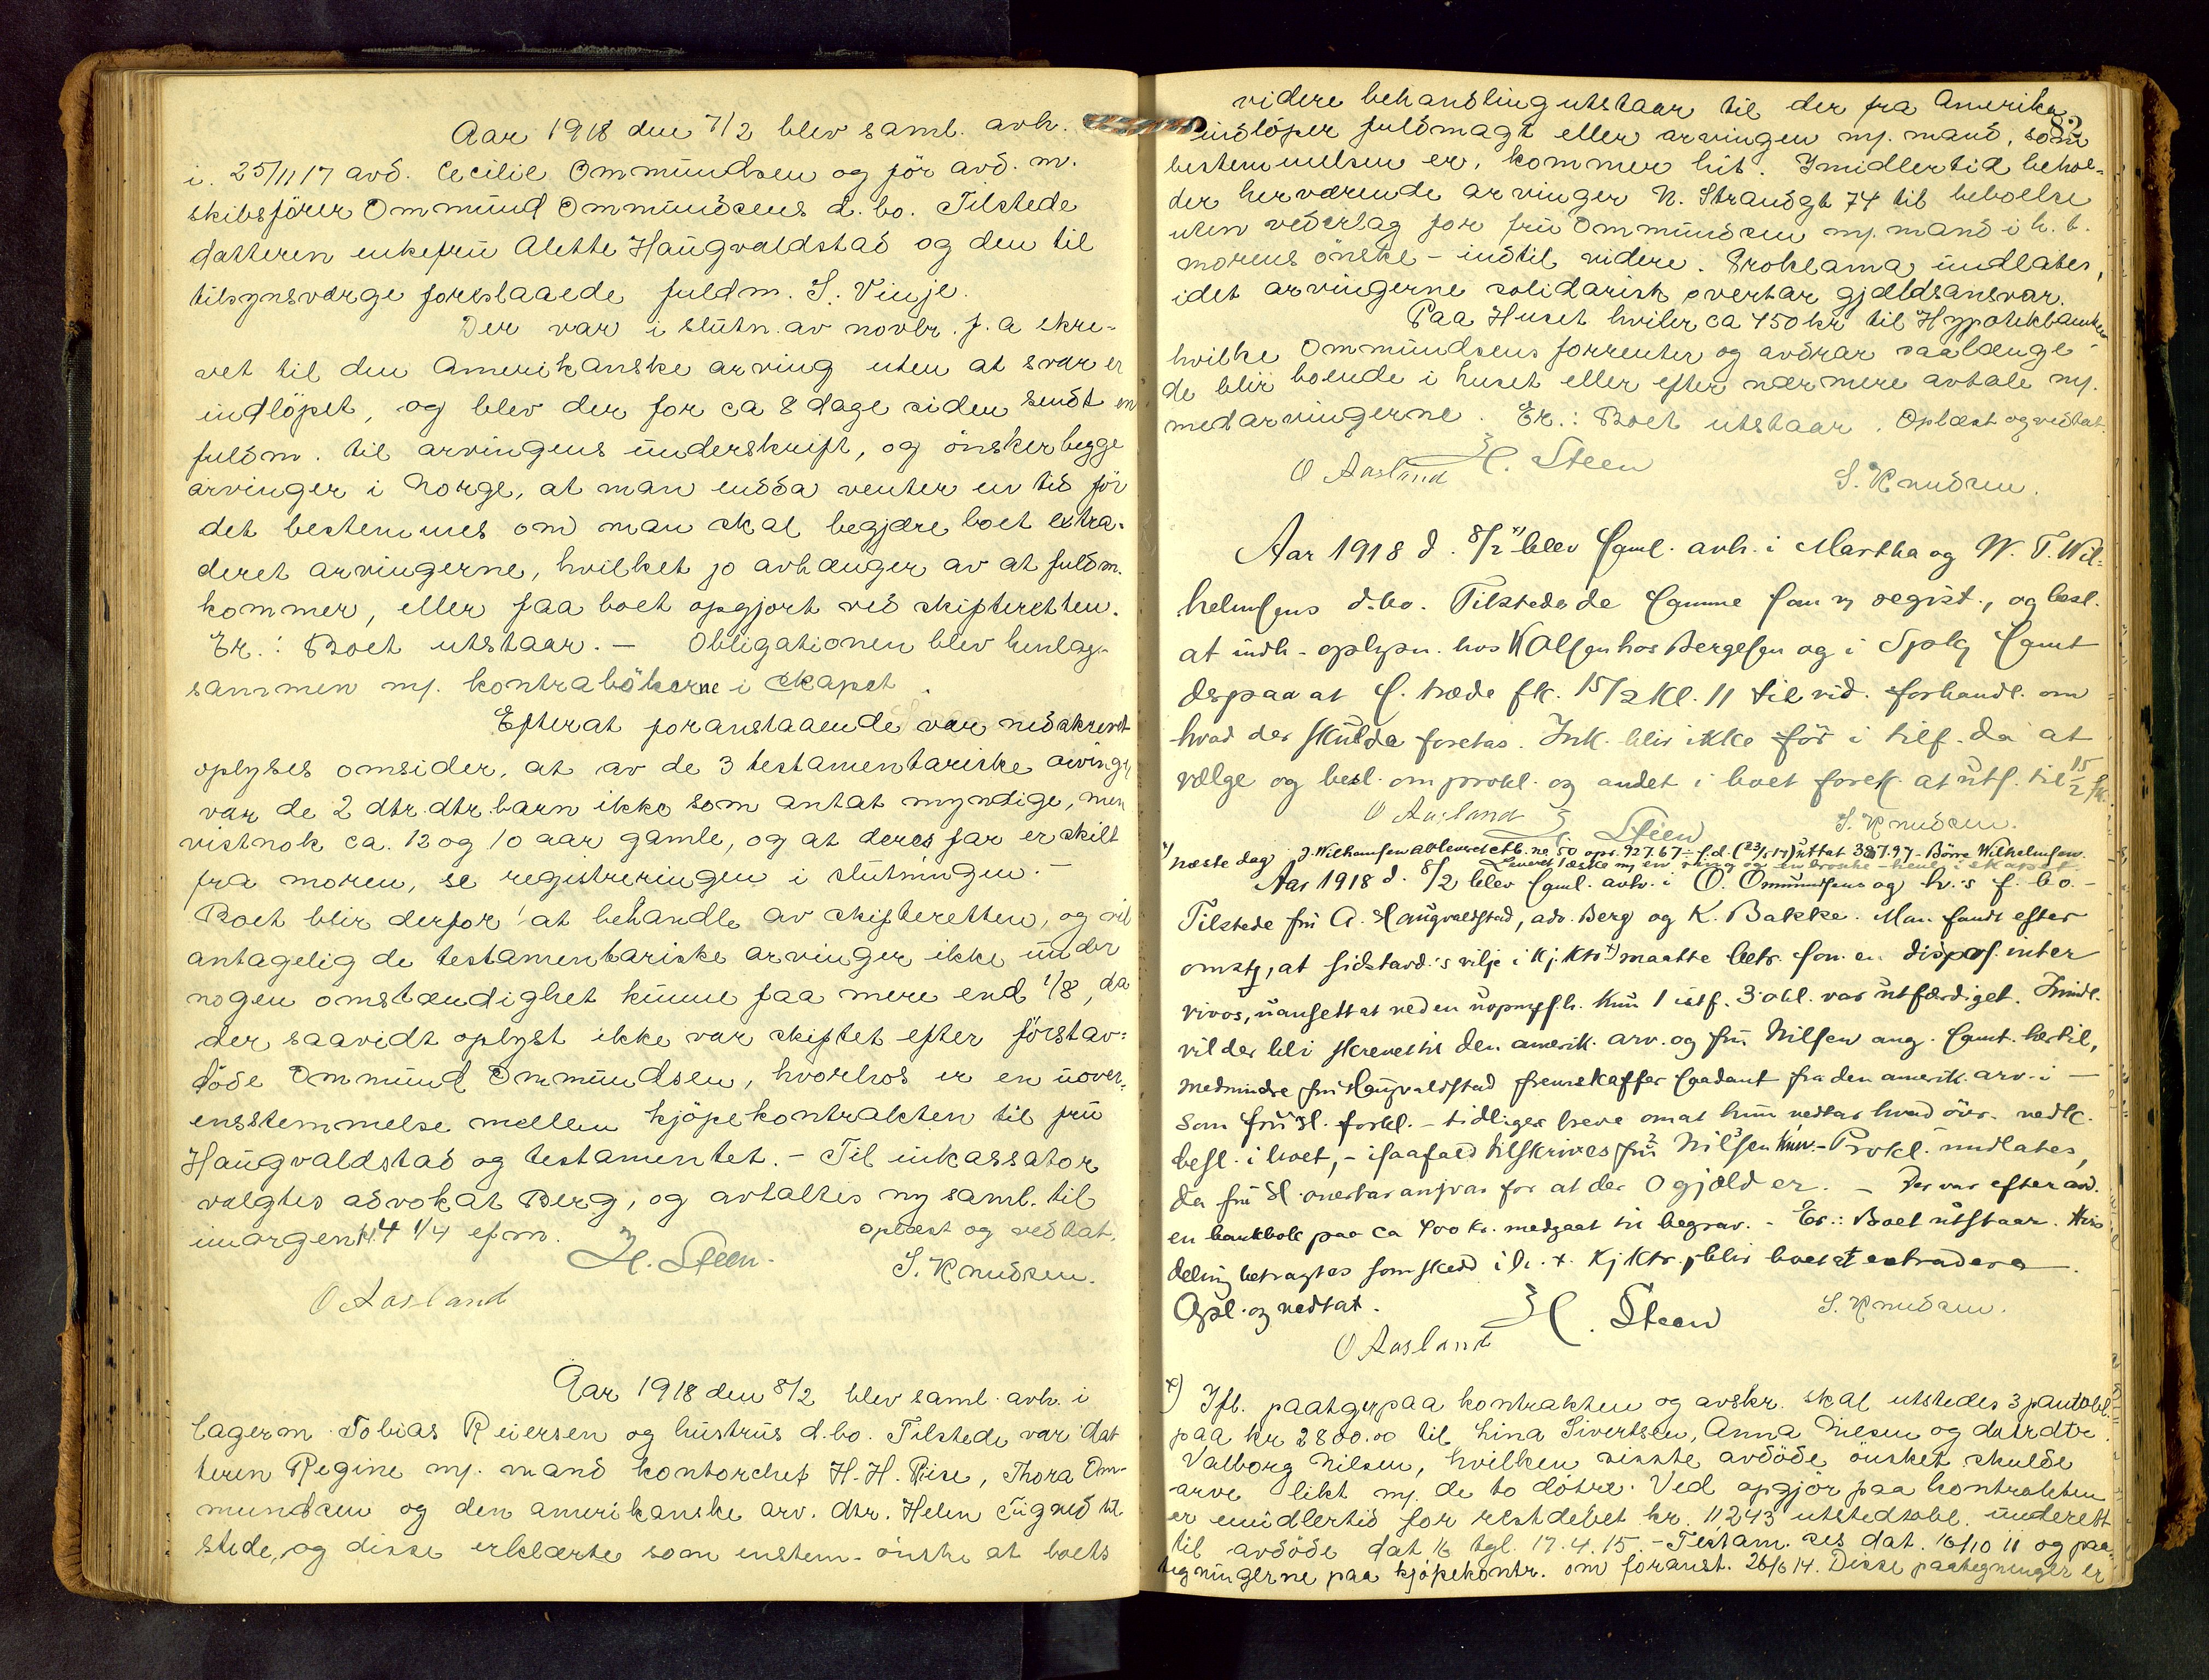 Aar 1918 den 7/2 blev saml. avh.
i. 25/11 17 avd. Cecilie Ommundsen og før avd. m.
skibsfører Ommund Ommundsens d. bo. Tilstede
datteren enkefru Alette Haugvaldstad og den til
tilsynsværge foreslaaede fuldm. S. Vinje.
Der var i slutn. av novbr. f. a skre-
vet til den Amerikanske arving uten at svar er
indløpet, og blev der for ca 8 dage siden sendt en
fuldm. til arvingens underskrift, og ønsker begge
arvinger i Norge, at man endda venter en tid før
det bestemmes om man skal begjære boet extra-
deret arvingerne, hvilket jo avhænger av at fuldm.
kommer, eller faa boet opgjort ved skifteretten.
Er.: Boet utstaar. — Obligationen blev henlagt
sammen m/. kontrabøkerne i skapet.
Efterat foranstaaende var nedskrevet
oplyses omsider, at av de 3 testamentariske arvinger
var de 2 dtr. dtr. barn ikke som antat myndige, men
vistnok ca. 12 og 10 aar gamle, og at deres far er skilt
fra moren, se registreringen i slutningen. —
Boet blir derfor at behandle av skifteretten, og vil
antagelig de testamentariske arvinger ikke under
nogen omstændighet kunne faa mere end 1/8, da
der saavidt oplyst ikke var skiftet efter førstav-
døde Ommund Ommundsen, hvorhos er en uover-
ensstemmelse mellem kjøpekontrakten til fru
Haugvaldstad og testamentet. – Til inkassator
valgtes advokat Berg, og avtaltes ny saml. til
imorgen kl. 4 1/4 efm. oplæst og vedtat.
H. Steen. S. Knudsen.
O Aasland
Aar 1918 den 8/2 blev saml. avh. i
lagerm. Tobias Reiersen og hustrus d. bo. Tilstede var dat
teren Regine m/. mand kontorchef H. H. Riise, Thora Om-
mundsen og den amerikanske arv. dtr. Helen Tigned til
stede, og disse erklærte som enstem. ønske at boets
82
videre behandling utstaar til der fra Amerika
indløper fuldmagt eller arvingen m/. mand, som
bestemmelsen er, kommer hit. Imidlertid behol-
der herværende arvinger N. Strandgt 74 til beboelse
uten vederlag for fru Ommundsen m/. mand i h. t.
morens ønske – indtil videre. Proklama undlates,
idet arvingerne solidarisk overtar gjældsansvar.
Paa Huset hviler ca 450 kr til Hypotekbanken
hvilke Ommundsens forrenter og avdrar saalænge
de blir boende i huset eller efter nærmere avtale m/.
medarvingerne. Er.: Boet utstaar. Oplæst og vedtat.
O Aasland H. Steen S. Knudsen.
Aar 1918 d. 8/2 x) blev saml. avh. i Martha og W. T. Wil-
helmsens d. bo. Tilstede de samme som v/ regist., og besl.
at indh. oplysn. hos K Olsen hos Bergesen og i Spbk samt
derpaa at s. træde fk. 15/2 kl. 11 til vid. forhandl. om
hvad der skulde foretas. Ink. blir ikke før i tilf. da at
vælge og besl. om prokl. og andet i boet foresl. at uts. til 15/2 fk.
O Aasland H. Steen S. Knudsen.
x) næste dag J. Wilhemsen avleveret ktb. no 50 opr. 927.67 – f. d. (23/1 17) uttat 387.97 – Børre Wilhelmsen
Leveret 1 æske m/ en ring og en broche – henl. i skapet
Aar 1918 d. 8/2 blev saml. avh. i O. Ommundsens og h.s f. bo. –
Tilstede fru A. Haugvaldstad, adv. Berg og K. Bakke. Man fandt efter
omst., at sidstavd.'s vilje i kj. ktr. x) maatte betr. som en dispos. inter
vivos, uansett at ved en uopmerks.h. kun 1 istf. 3 obl. var utfærdiget. Imidl.
vil der bli skrevet til den amerik. arv. og fru Nilsen ang. samt. hertil,
medmindre fru Haugvaldstad fremskaffer saadant fra den amerik. arv. i —
som fru H. forkl. – tidligere breve om at hun vedtar hvad øvr. vedk.
besl. i boet, – isaafald tilskrives fru Nilsen kun. – Prokl. undlates,
da fru H. overtar ansvar for at der 0 gjæld er. – Der var efter avd.
en bankbok paa ca 400 kr. medgaat til begrav. – Er.: Boet utstaar. Hvis
deling betragtes som skedd i h. t. kj ktr. blir boet at extradere.
Opl. og vedtat. H. Steen S. Knudsen.
O Aasland
x) Ifl. paategn paa kontrakten og avskr. skal utstedes 3 pantobl.
paa kr 2800.00 til Lina Sivertsen, Anna Nilsen og datrdtr.
Valborg Nilsen, hvilken sisste avdøde ønsket skulde
arve likt m/. de to døtre. Ved opgjør paa kontrakten
er imidlertid for restdebet kr. 11243 utstedt obl. underett
til avdøde dat. 16 tgl. 17.4.15. – Testam. ses dat. 16/10 11 og paa-
tegningerne paa kjøpekontr. om foranst. 26/6 14. Disse paategninger er